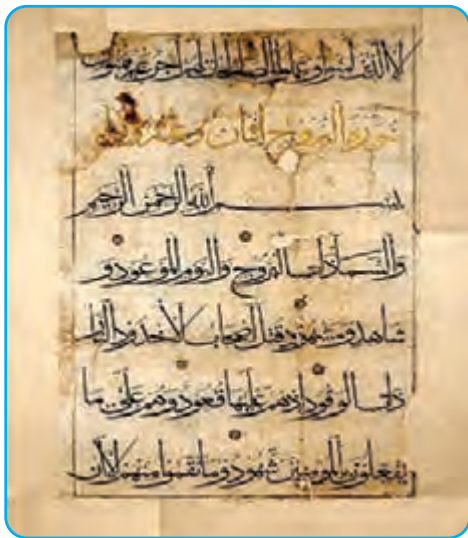 الا الذين امنوا وعملوا الصالحات لهم اجر غير ممنون
سورة البروج اثنان وعشرون
بسم الله الرحمن الرحيم
والسما ذات البروج واليوم الموعود و
شاهد ومشهود قتل اصحاب الاخدود النار
ذات الوقود اذ هم عليها قعود وهم على ما
يفعلون بالمومنين شهود وما نقموا منهم الا ان